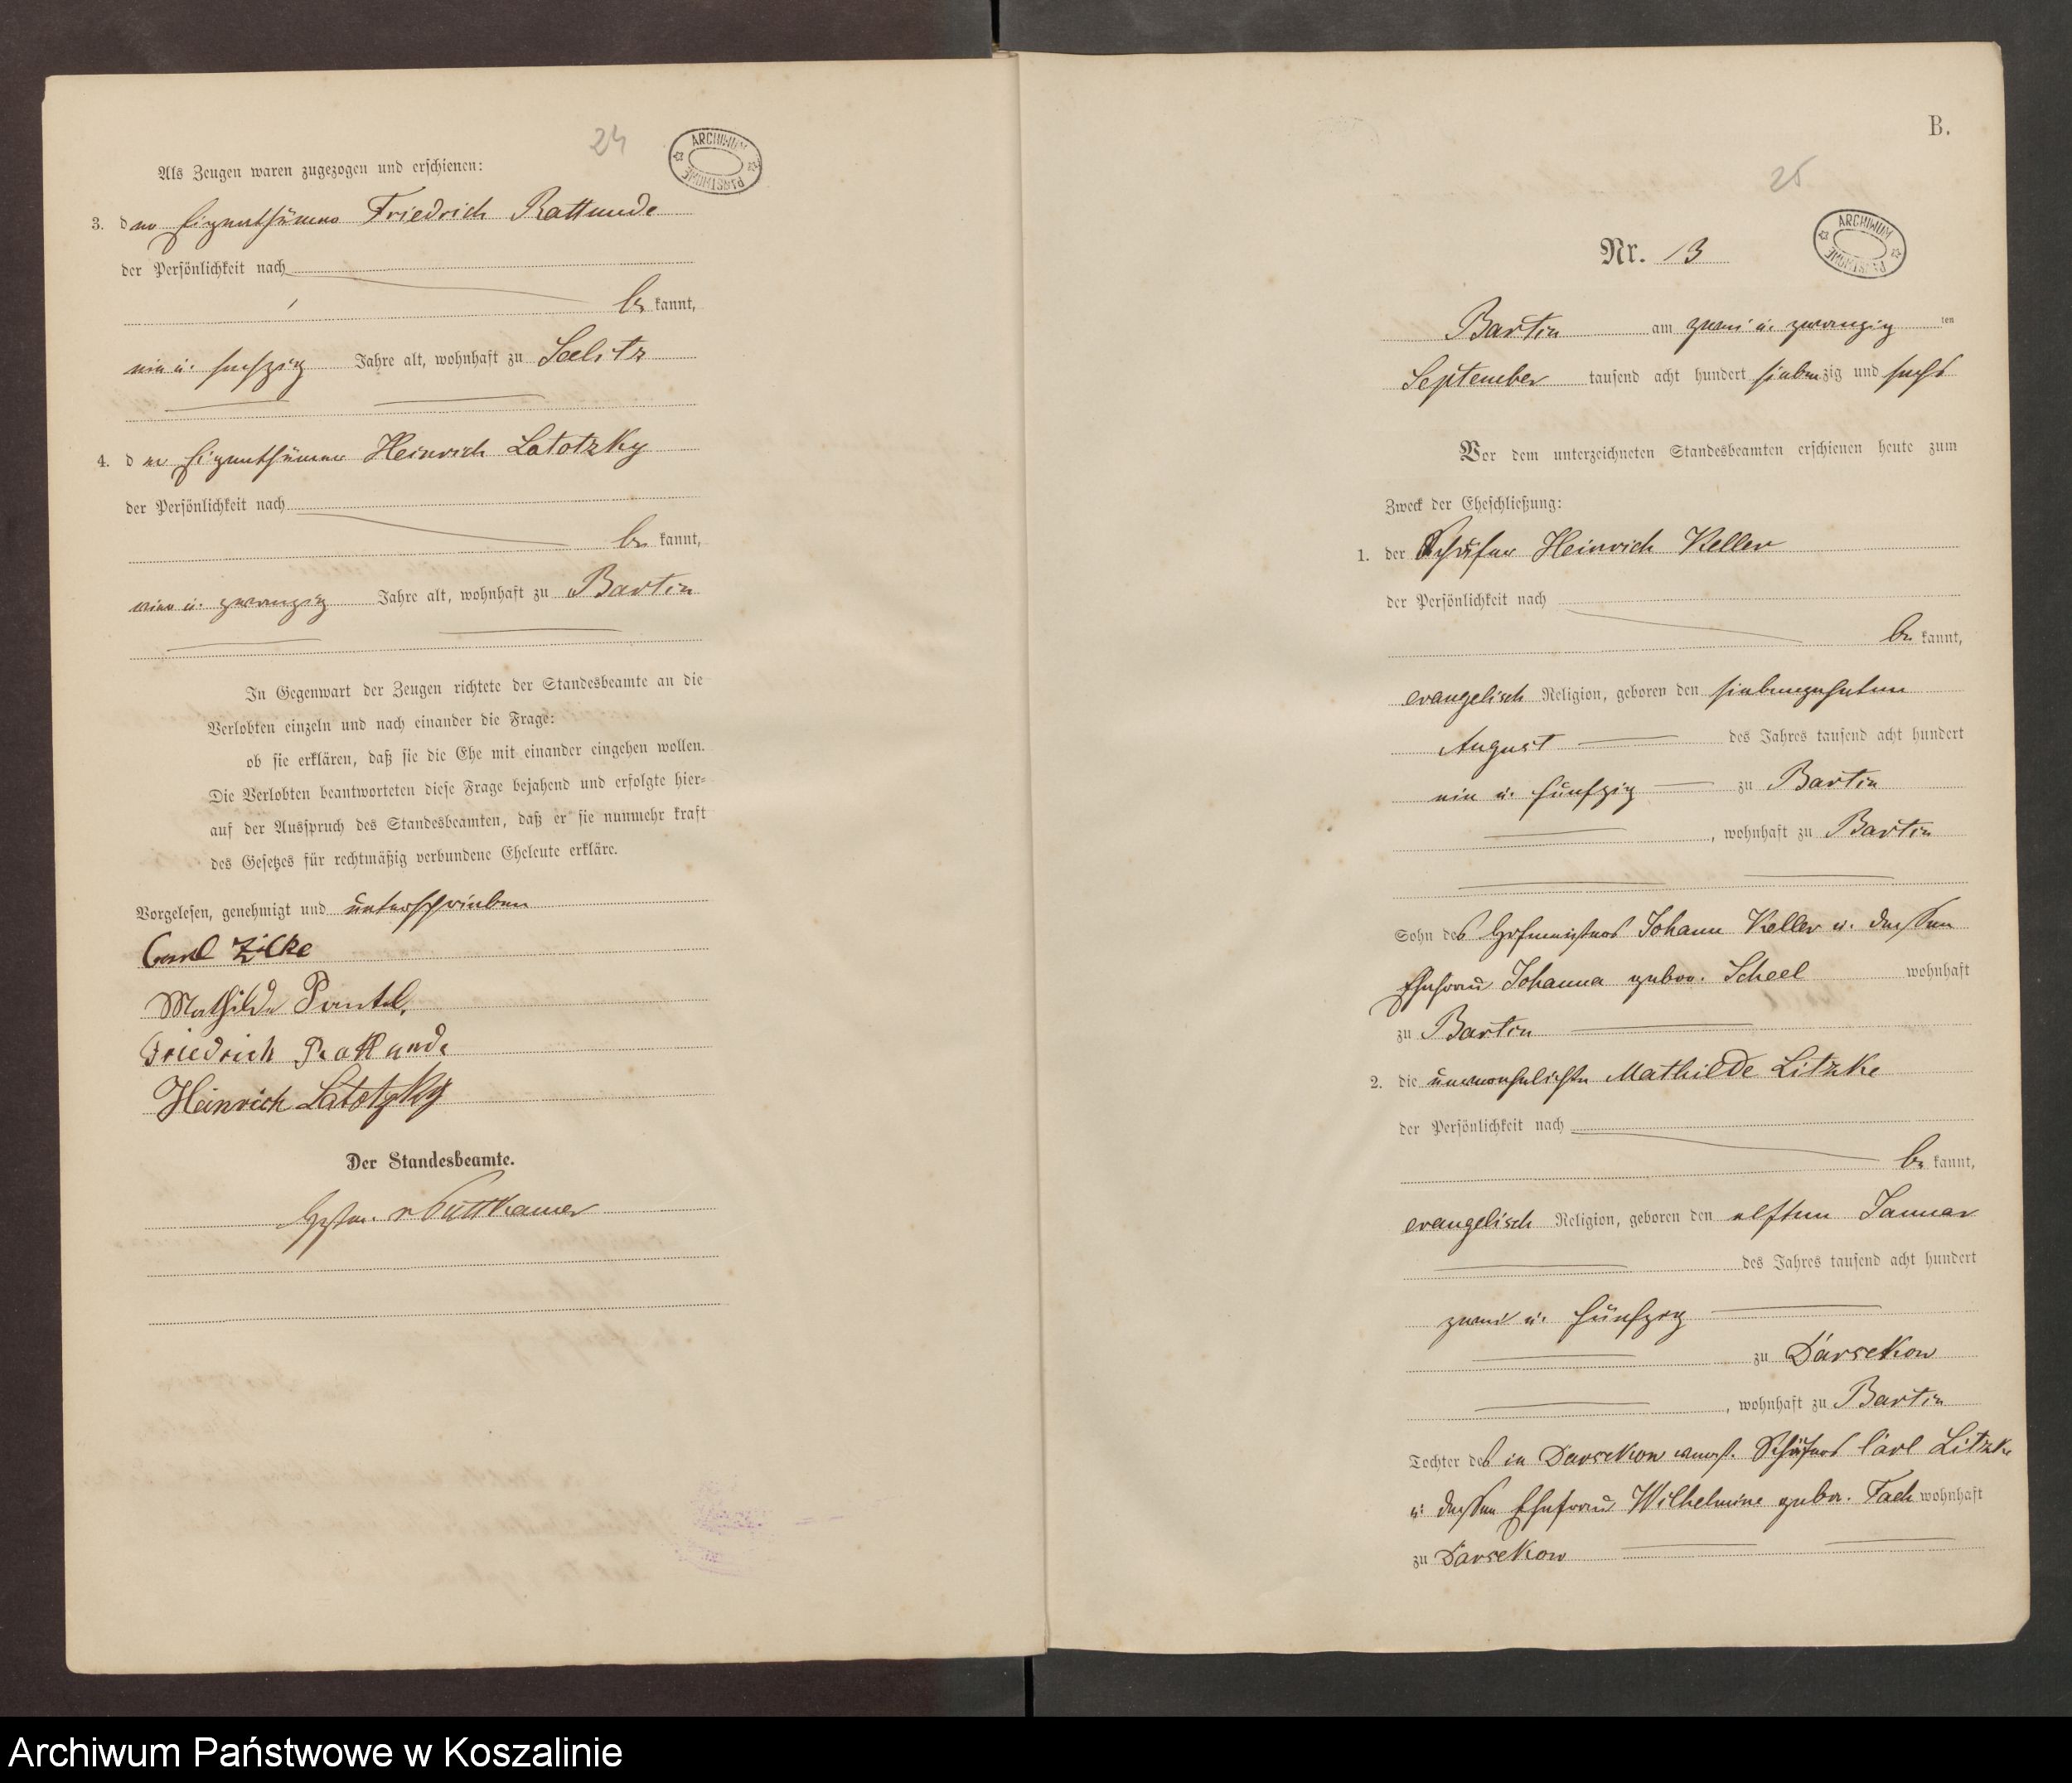 24
ARCHIWUM PAŃSTWOWE
Als Zeugen waren zugezogen und erschienen:
3. der Eigenthümer Friedrich Rattunde
der Persönlichkeit nach
be kannt,
ein u. sechszig Jahre alt, wohnhaft zu Seelitz
4. der Eigenthümer Heinrich Latotzky
der Persönlichkeit nach
be kannt,
u. zwanzig Jahre alt, wohnhaft zu Bartin
In Gegenwart der Zeugen richtete der Standesbeamte an die
Verlobten einzeln und nach einander die Frage:
ob sie erklären, daß sie die Ehe mit einander eingehen wollen.
Die Verlobten beantworteten diese Frage bejahend und erfolgte hier=
auf der Ausspruch des Standesbeamten, daß er sie nunmehr kraft
des Gesetzes für rechtmäßig verbundene Eheleute erkläre.
Vorgelesen, genehmigt und unterschrieben
Carl Zilke
Mathilde Pantel.
Friedrich Rattunde
Heinrich Latotzky
Der Standesbeamte.
v Puttkamer
B.
25
ARCHIWUM PAŃSTWOWE
Nr. 13
Bartin am zwei u. zwanzig ten
September tausend acht hundert siebenzig und sechs
Vor dem unterzeichneten Standesbeamten erschienen heute zum
Zweck der Eheschließung:
1. der Schäfer Heinrich Keller
der Persönlichkeit nach
be kannt,
evangelisch Religion, geboren den siebenzehnten
August des Jahres tausend acht hundert
ein u. fünfzig zu Bartin
, wohnhaft zu Bartin
Sohn des Hofmeisters Johann Keller u. dessen
Ehefrau Johanna gebor. Scheel wohnhaft
zu Bartin
2. die unverehelichte Mathilde Litzke
der Persönlichkeit nach
be kannt,
evangelisch Religion, geboren den elften Januar
des Jahres tausend acht hundert
zwei u. fünfzig
zu Darsekow
, wohnhaft zu Bartin
Tochter des in Darsekow verst. Schäfers Carl Litzke
u. dessen Ehefrau Wilhelmine gebor. Fach wohnhaft
zu Darsekow
Archiwum Państwowe w Koszalinie